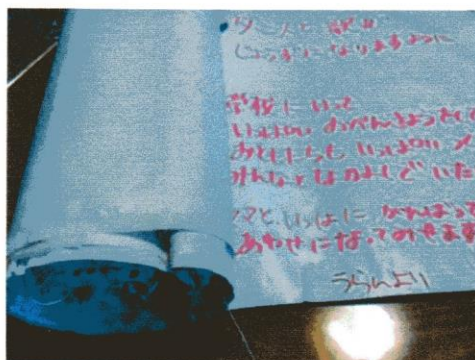 ダンスと歌が
じょうずになりますように
学校にいって
いっぱい おべんきょうをして
おともだちも いっぱい
みんなとなかよしでいた
マと、いっしょに がんばって
あわせになってみせます
うらんより